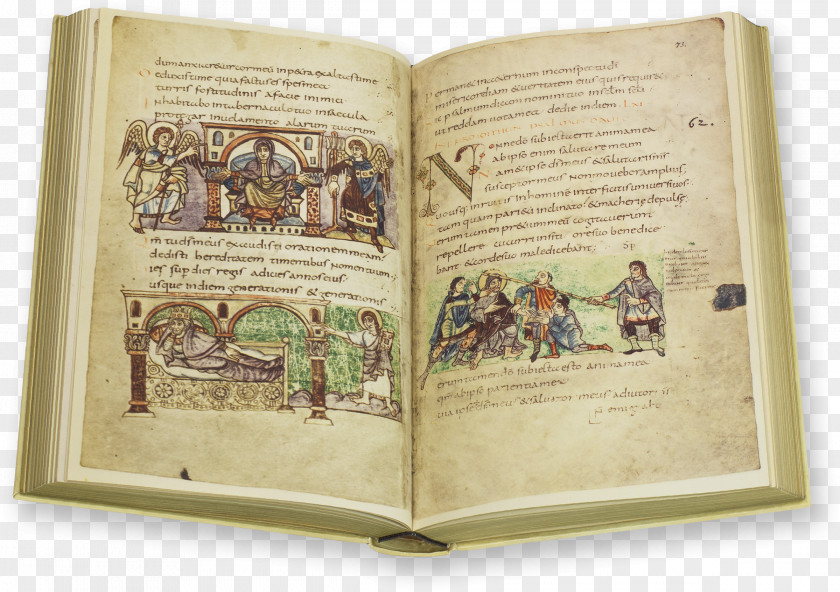 dum anxiaretur cor meum in petra exaltasti me
deduxisti me quia factus es spes mea
turris fortitudinis a facie inimici
Inhabitabo in tabernaculo tuo in saecula
protegar in velamento alarum tuarum
m tu ds meus exaudisti orationem meam
dedisti hereditatem timentibus nomen tuum
ies sup dies regis adicies annos eius
usque in diem generationis & generationis
73.
Permanet in aeternum in conspectu di
misericordiam & veritatem eius quis requir&
ic psalmum dicam nomini tuo in sclm scli
ut reddam vota mea de die in diem LXI
62.
Nonne do subiecta erit anima mea
ab ipso enim salutare meum
Nam & ipse ds meus & salutaris meus
susceptor meus non movebor amplius
Quousq inruitis in homine interficitis universi vos
tam quam pari&i inclinato & macherie depulse
erum tamen pretium meum cogitaverunt
repellere cucurri in siti ore suo benedice
bant & corde suo maledicebant
erum tamen do subiecta esto anima mea
qm ab ipso patientia mea
uia ipse ds meus & salvator meus adiutor
n emigrabo